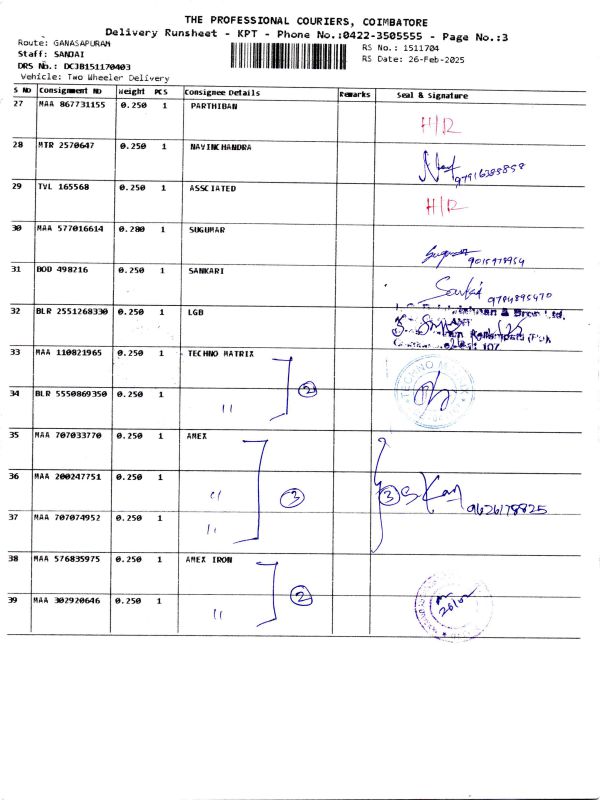 THE PROFESSIONAL COURIERS, COIMBATORE
Delivery Runsheet - KPT - Phone No.:0422-3505555 - Page No.:3
Route: GANASAPURAM
RS No.: 1511704
Staff: SANJAI
RS Date: 26-Feb-2025
DRS No.: DCJB151170403
Vehicle: Two Wheeler Delivery
S NO Consignment NO Weight PCS Consignee Details Remarks Seal & Signature
27 MAA 867731155 0.250 1 PARTHIBAN
H/R
28 MTR 2570647 0.250 1 NAVINCHANDRA
29 TVL 165568 0.250 1 ASSCIATED
H/R
30 MAA 577016614 0.280 1 SUGUMAR
31 BOD 498216 0.250 1 SANKARI
32 BLR 2551268330 0.250 1 LGB
33 MAA 110821965 0.250 1 TECHNO MATRIX
TECHNO
34 BLR 5550869350 0.250 1 " 2
35 MAA 707033770 0.250 1 AMEX
36 MAA 200247751 0.250 1 " 3 3
9626178825
37 MAA 707074952 0.250 1 "
38 MAA 576835975 0.250 1 AMEX IRON
39 MAA 302920646 0.250 1 " 2